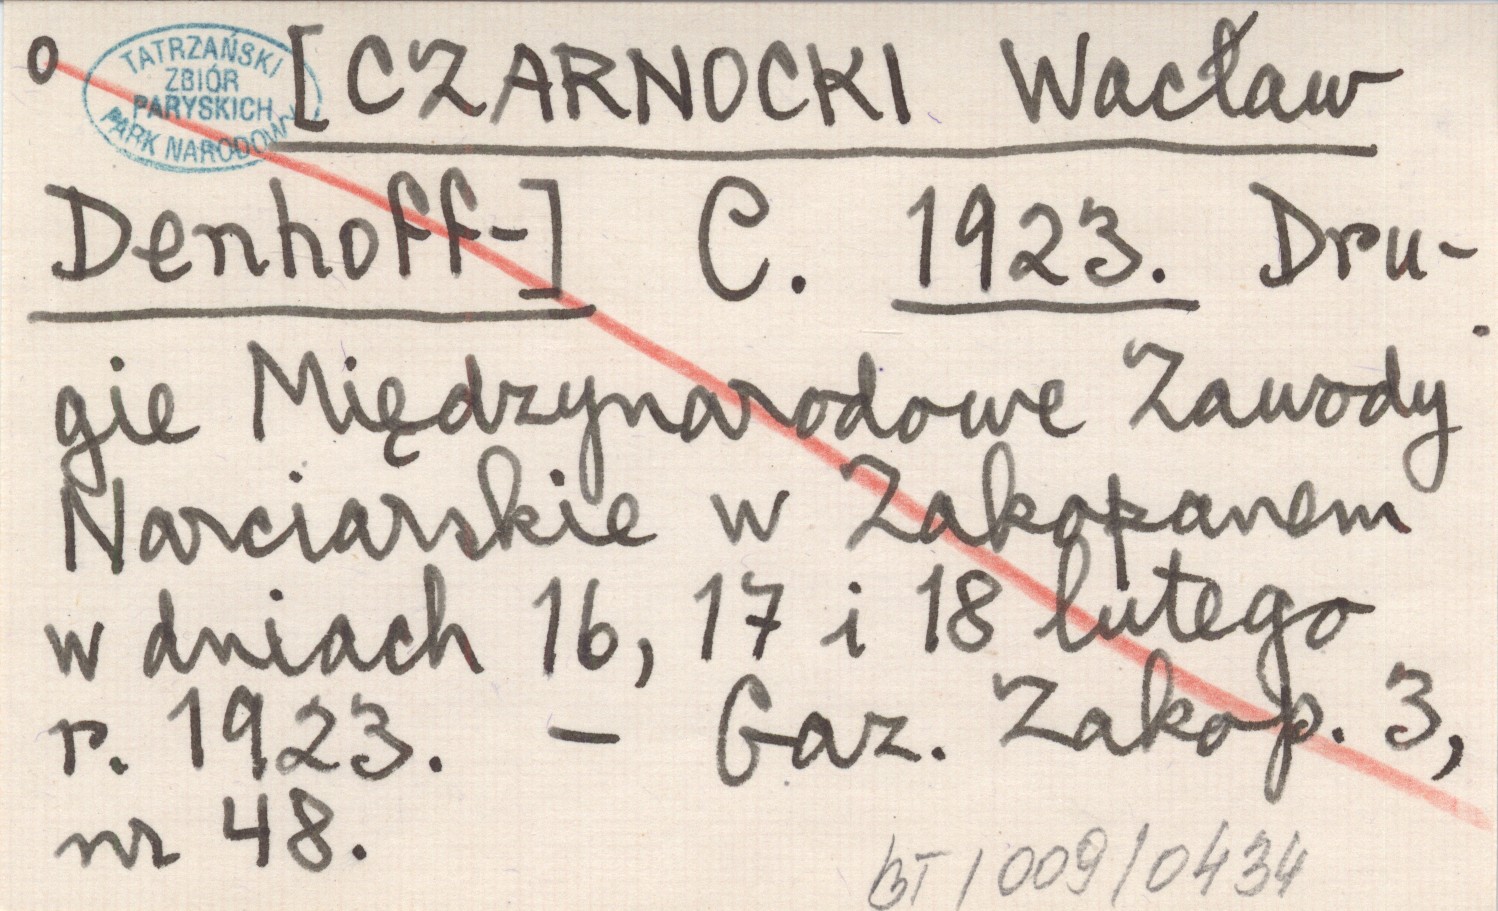 o TATRZAŃSKI ZBIÓR PARYSKICH PARK NARODOWY
[CZARNOCKI Wacław
Denhoff-] C. 1923. Dru-
gie Międzynarodowe Zawody
Narciarskie w Zakopanem
w dniach 16, 17 i 18 lutego
r. 1923. – Gaz. Zakop. 3,
nr 48.
BT/009/0434